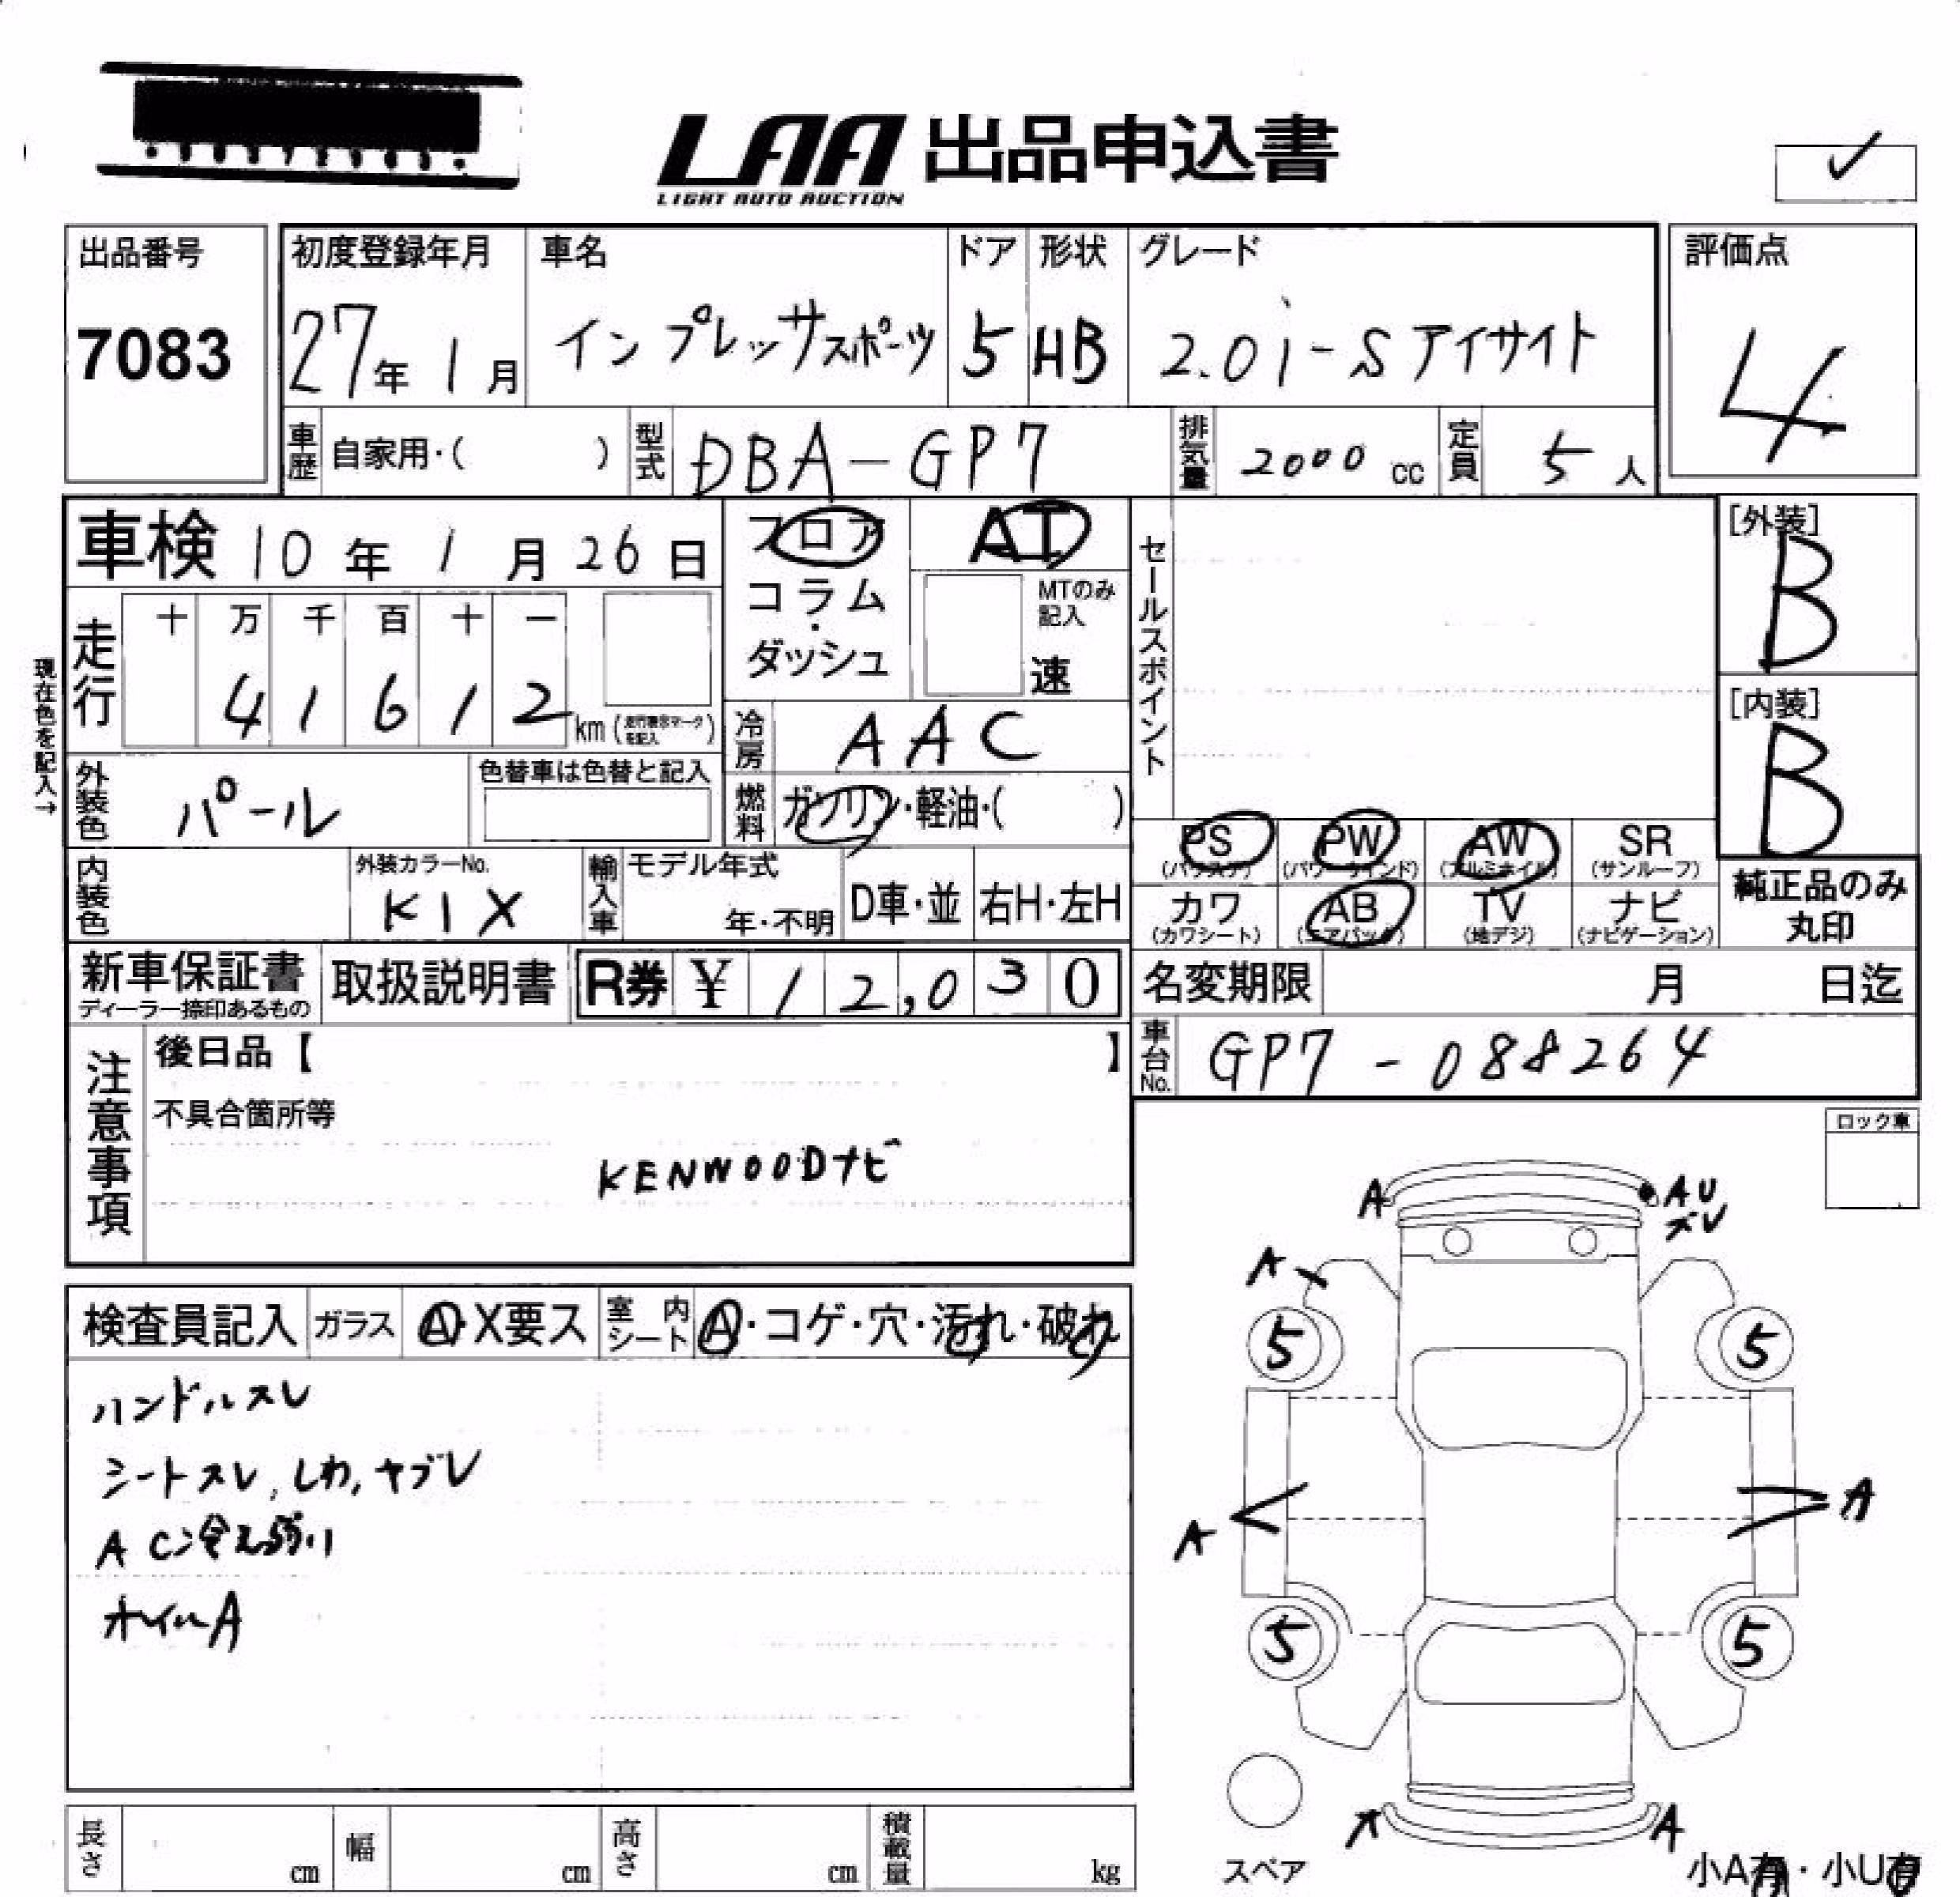 LAA 出品申込書
LIGHT AUTO AUCTION
出品番号
7083
初度登録年月
27年 1月
車名
インプレッサスポーツ
ドア
5
形状
HB
グレード
2.0i-S アイサイト
評価点
4
車歴 自家用・( )
型式 DBA-GP7
排気量 2000 cc
定員 5 人
車検 10年 1月 26日
フロア
コラム
・
ダッシュ
AT
MTのみ記入
速
セールスポイント
[外装]
B
[内装]
B
現在色を記入→
走行
十 万 千 百 十 一
4 1 6 1 2 km (走行表示マークを記入)
冷房 AAC
外装色 パール
色替車は色替と記入
燃料 ガソリン・軽油・( )
PS (パワステ)
PW (パワーウインド)
AW (アルミホイル)
SR (サンルーフ)
カワ (カワシート)
AB (エアバック)
TV (地デジ)
ナビ (ナビゲーション)
純正品のみ
丸印
内装色
外装カラーNo.
K1X
輸入車
モデル年式
年・不明
D車・並
右H・左H
新車保証書
ディーラー捺印あるもの
取扱説明書
R券 ¥ 12,030
名変期限 月 日迄
車台No. GP7-088264
注意事項
後日品【 】
不具合箇所等
KENWOODナビ
ロック車
検査員記入
ガラス A・X要ス
室内シート A・コゲ・穴・汚れ・破れ
ハンドルスレ
シートスレ, しわ, ヤブレ
AC冷え弱い
オイルA
A
AU
ズレ
A
5
5
A
A
5
5
A
スペア
小A有・小U有
長さ cm
幅 cm
高さ cm
積載量 kg